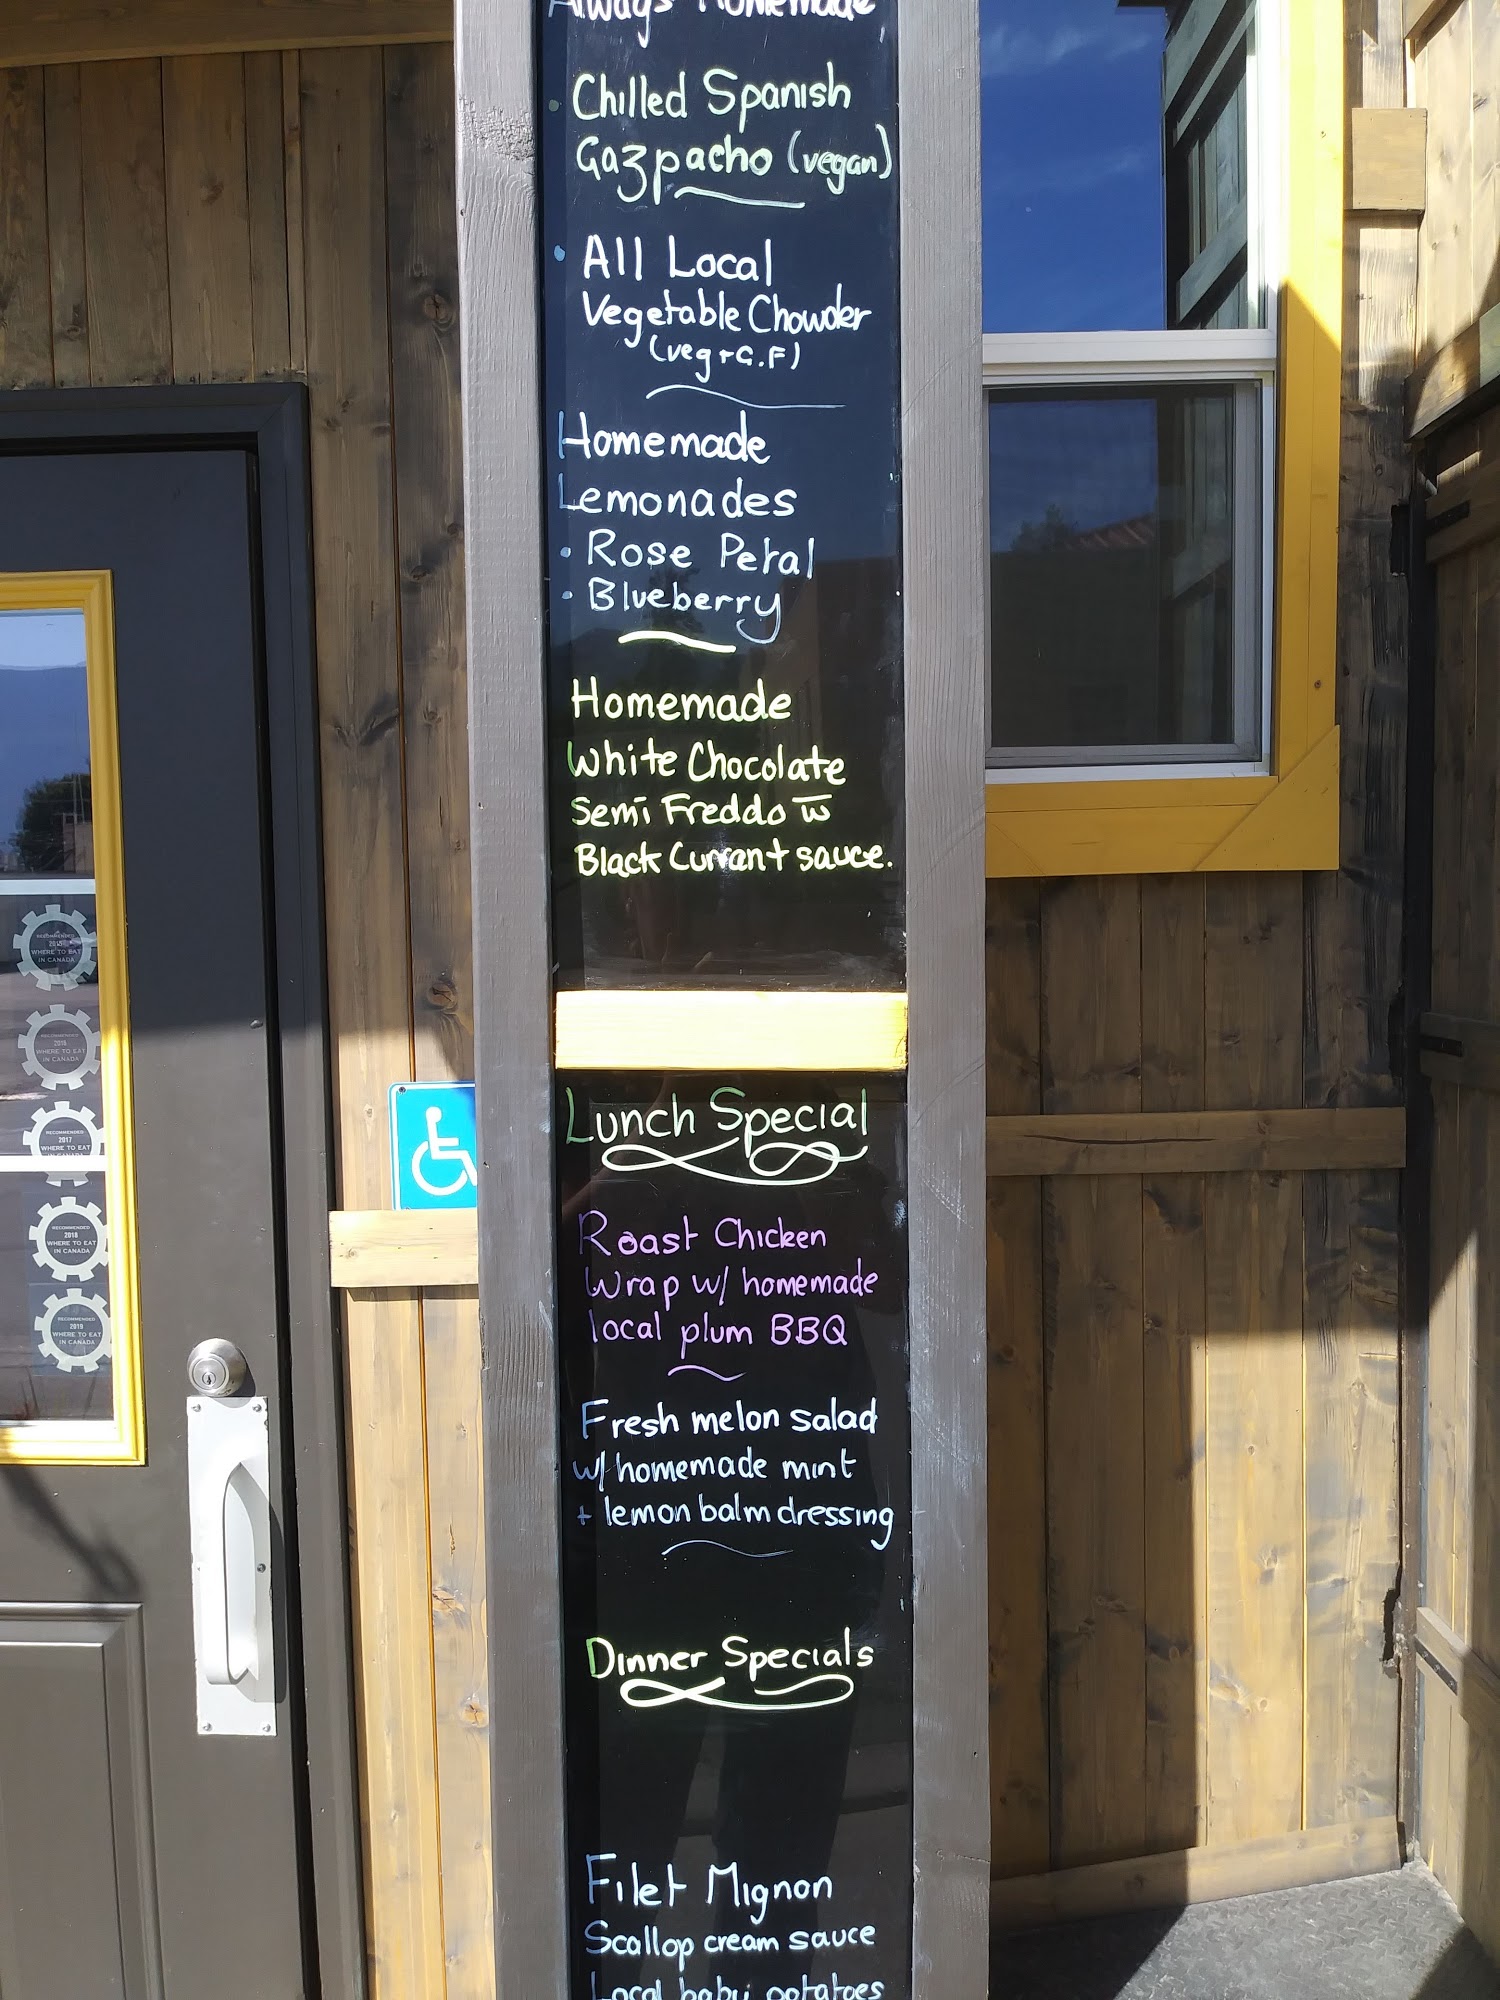 Always Homemade
• Chilled Spanish
Gazpacho (vegan)
• All Local
Vegetable Chowder
(veg + G.F)
Homemade
Lemonades
• Rose Petal
• Blueberry
Homemade
White Chocolate
Semi Freddo w̅
Black Currant sauce.
Lunch Special
Roast Chicken
Wrap w/ homemade
local plum BBQ
Fresh melon salad
w/ homemade mint
+ lemon balm dressing
Dinner Specials
Filet Mignon
Scallop cream sauce
Local baby potatoes
RECOMMENDED
2015
WHERE TO EAT
IN CANADA
RECOMMENDED
2016
WHERE TO EAT
IN CANADA
RECOMMENDED
2017
WHERE TO EAT
RECOMMENDED
2018
WHERE TO EAT
IN CANADA
RECOMMENDED
2019
WHERE TO EAT
IN CANADA